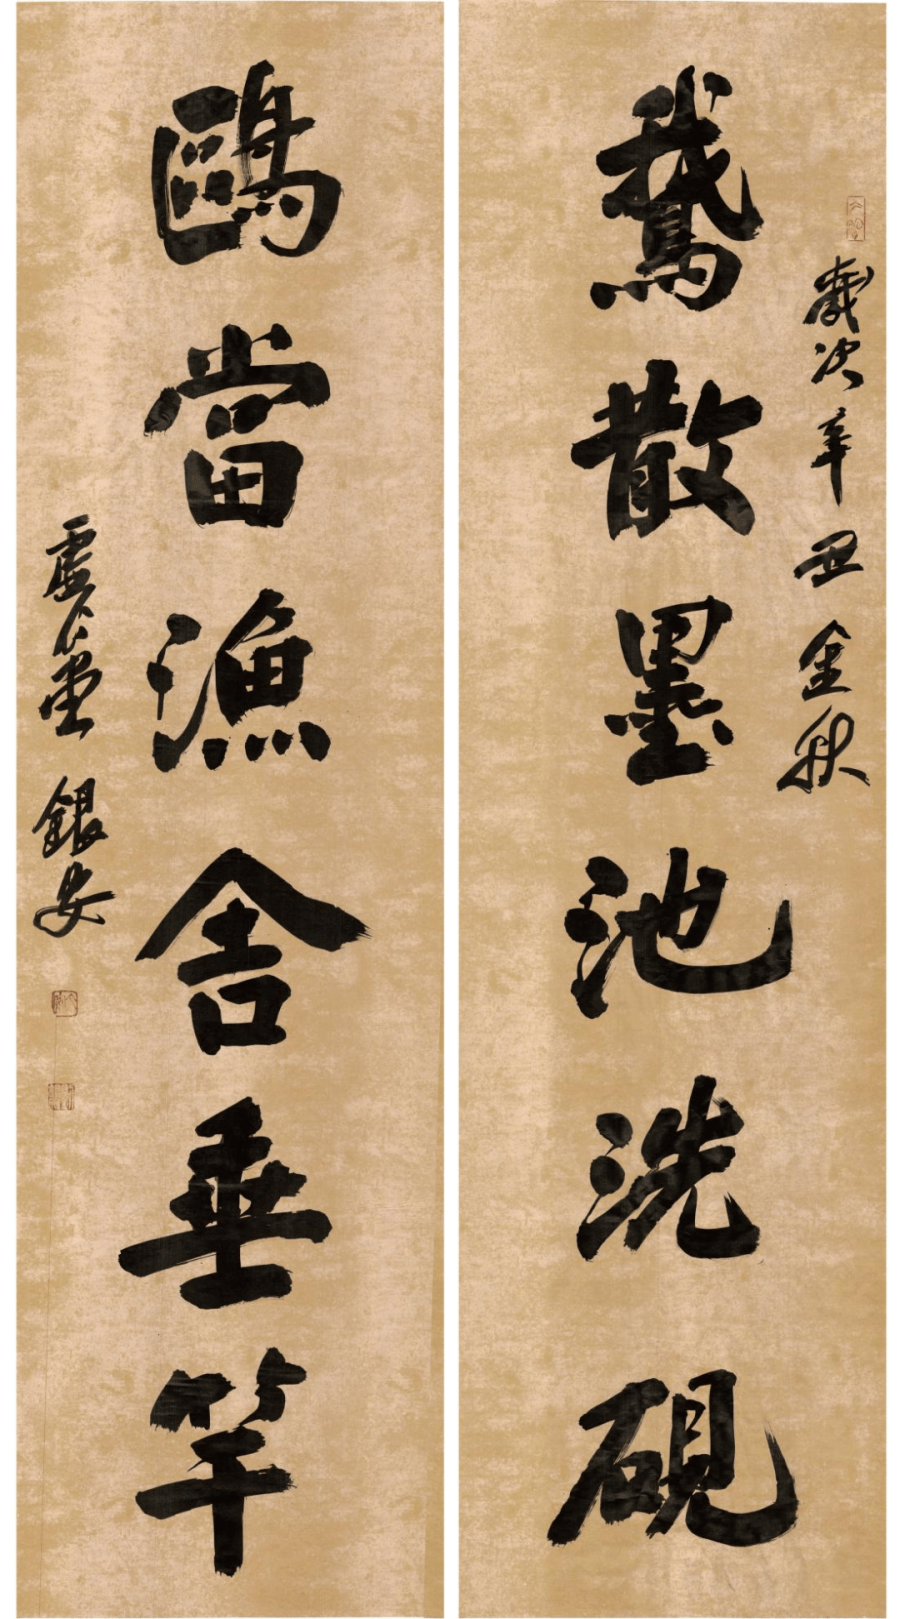 歲次辛丑金秋
鵞散墨池洗硯
鷗當漁舍垂竿
堂銀安